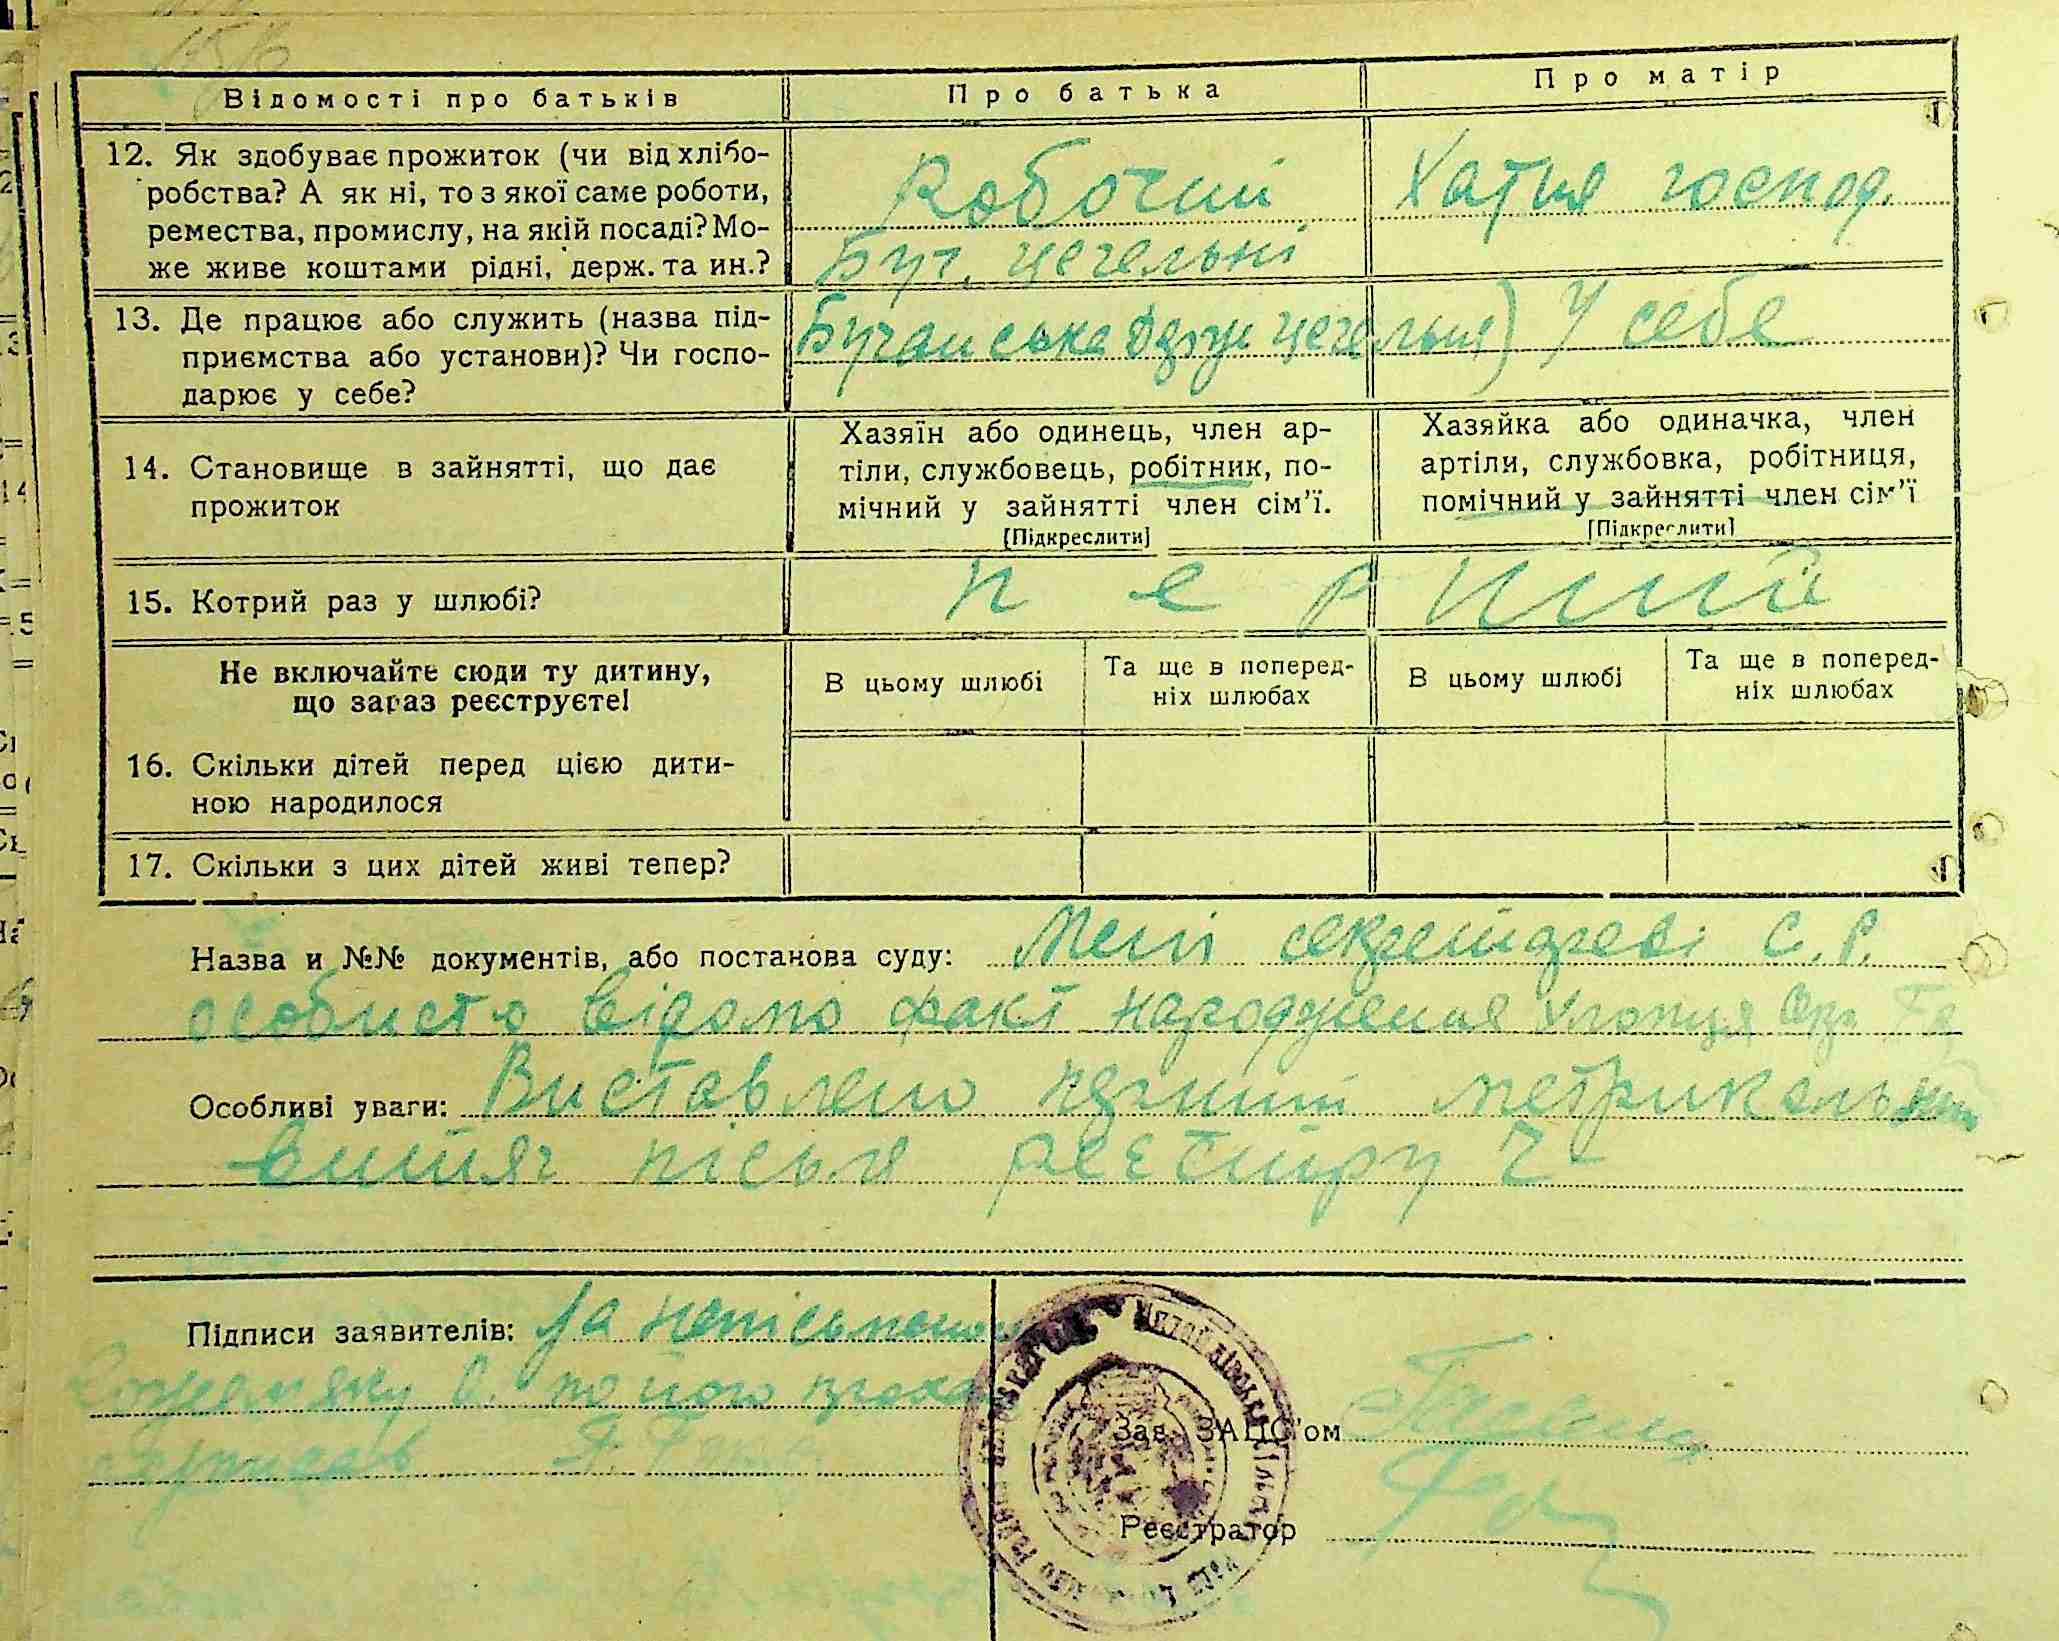 Відомості про батьків
Про батька
Про матір
12. Як здобуває прожиток (чи від хлібо-
робства? А як ні, то з якої саме роботи,
ремества, промислу, на якій посаді? Мо-
же живе коштами рідні, держ. та ин.?
Робочий
Буч. цегельні
Хатня господ.
13. Де працює або служить (назва під-
приємства або установи)? Чи госпо-
дарює у себе?
Бучанська Держ цегельня)
У себе
14. Становище в зайнятті, що дає
прожиток
Хазяїн або одинець, член ар-
тіли, службовець, робітник, по-
мічний у зайнятті член сім'ї.
[Підкреслити]
Хазяйка або одиначка, член
артіли, службовка, робітниця,
помічний у зайнятті член сім'ї
[Підкреслити]
15. Котрий раз у шлюбі?
перший
Не включайте сюди ту дитину,
що зараз реєструєте!
В цьому шлюбі
Та ще в поперед-
ніх шлюбах
В цьому шлюбі
Та ще в поперед-
ніх шлюбах
16. Скільки дітей перед цією дити-
ною народилося
17. Скільки з цих дітей живі тепер?
Назва и №№ документів, або постанова суду: Мені секретареві С. Р.
особисто відомо факт народження хлопця
Особливі уваги: Виставлено метрикальн
витяг після реєстру Ч-
Підписи заявителів: За неписьменого
по його проха
підписав
Зав. ЗАГС'ом
Реєстратор